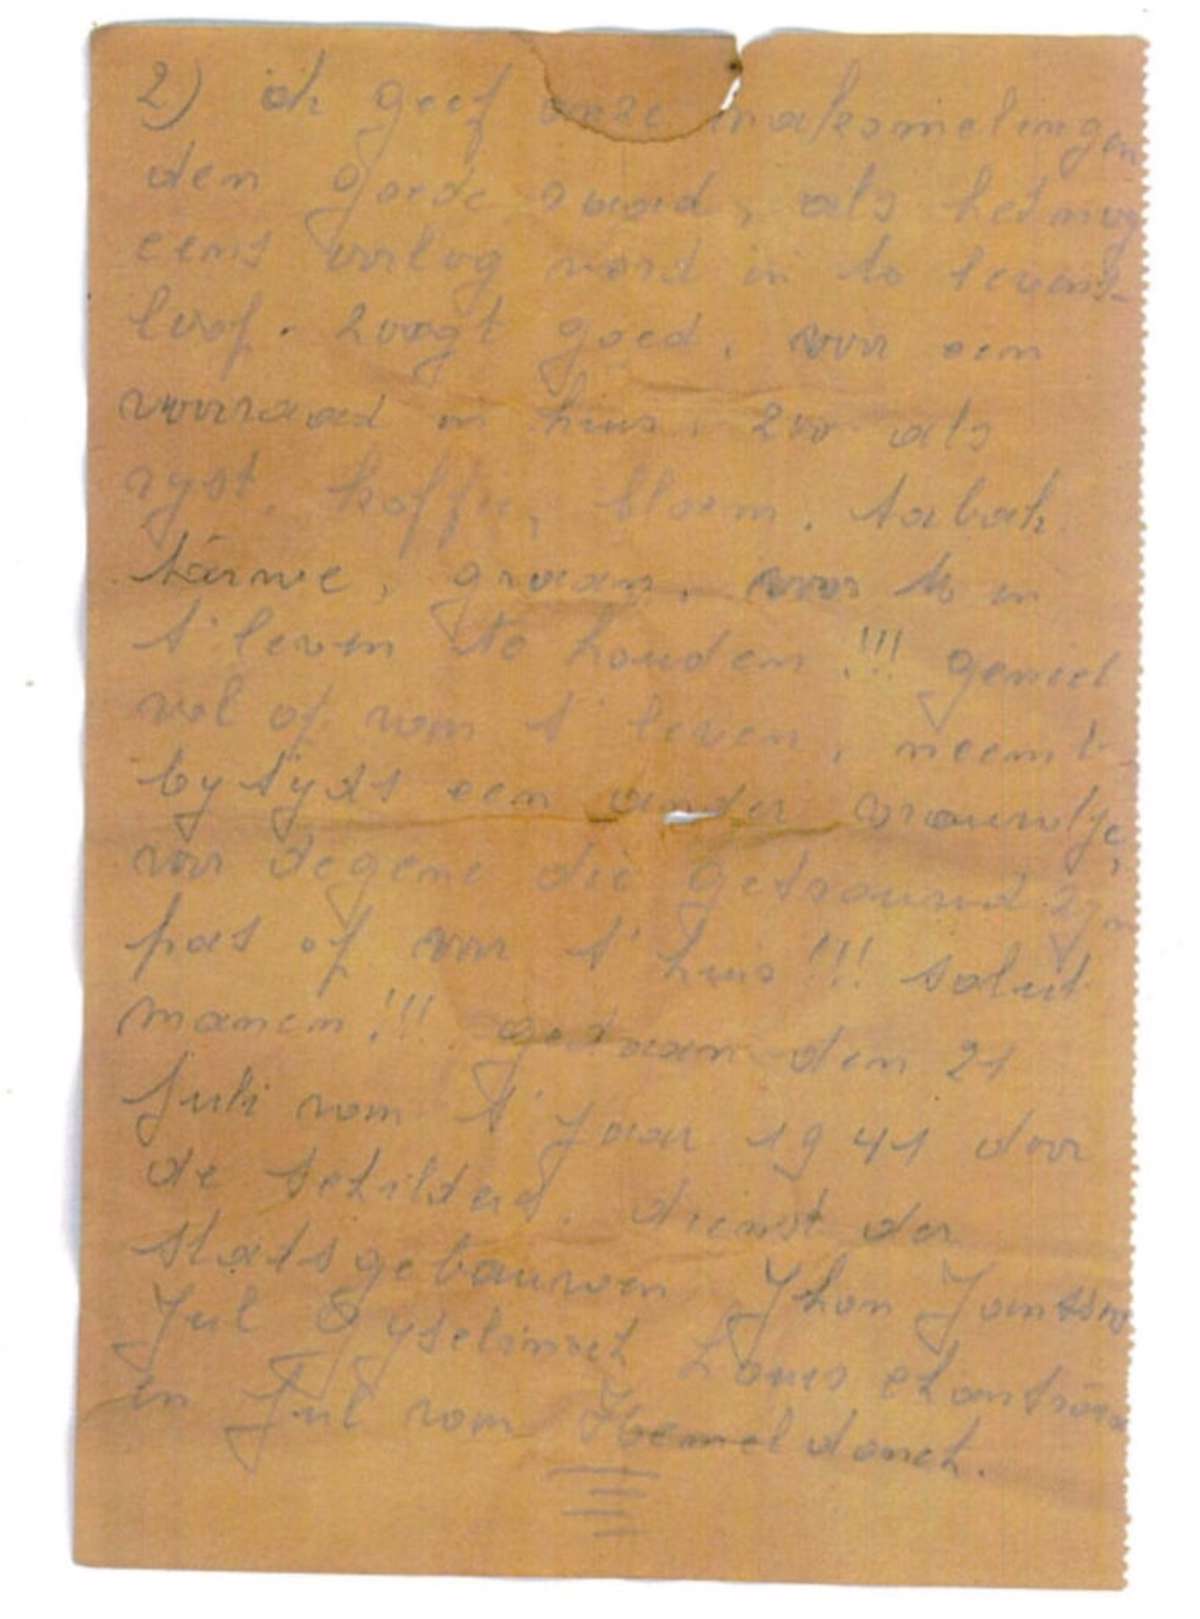 2) ik geef onze nakomelingen
den goede raad, als het nog
eens oorlog word in to levens-
loop. Zorgt goed, voor een
voorraad in huis. zoo als
ryst, koffie, bloem, tabak
tarwe, graan, voor to in
t' leven te houden !!! geniet
vol op van t' leven, neemt
by tyds een ander vrouwtje,
voor degene die getrouwd zyn
pas op voor t' huis !!! salut
manen !!! gedaan den 21
Juli van t' jaar 1941 door
de schilders. dienst der
stadsgebouwen Jhon
Jul Gyselinck Louis
en Jul van Hemeldonck.